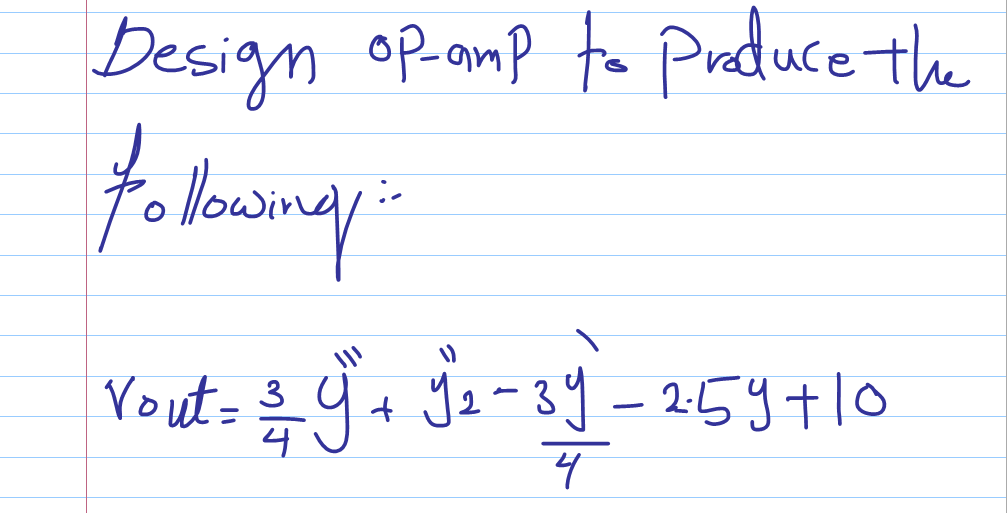 Design op-amp to Produce the
following :-
Vout = 3/4 y''' + y''2 - 3y'/4 - 2.5y + 10